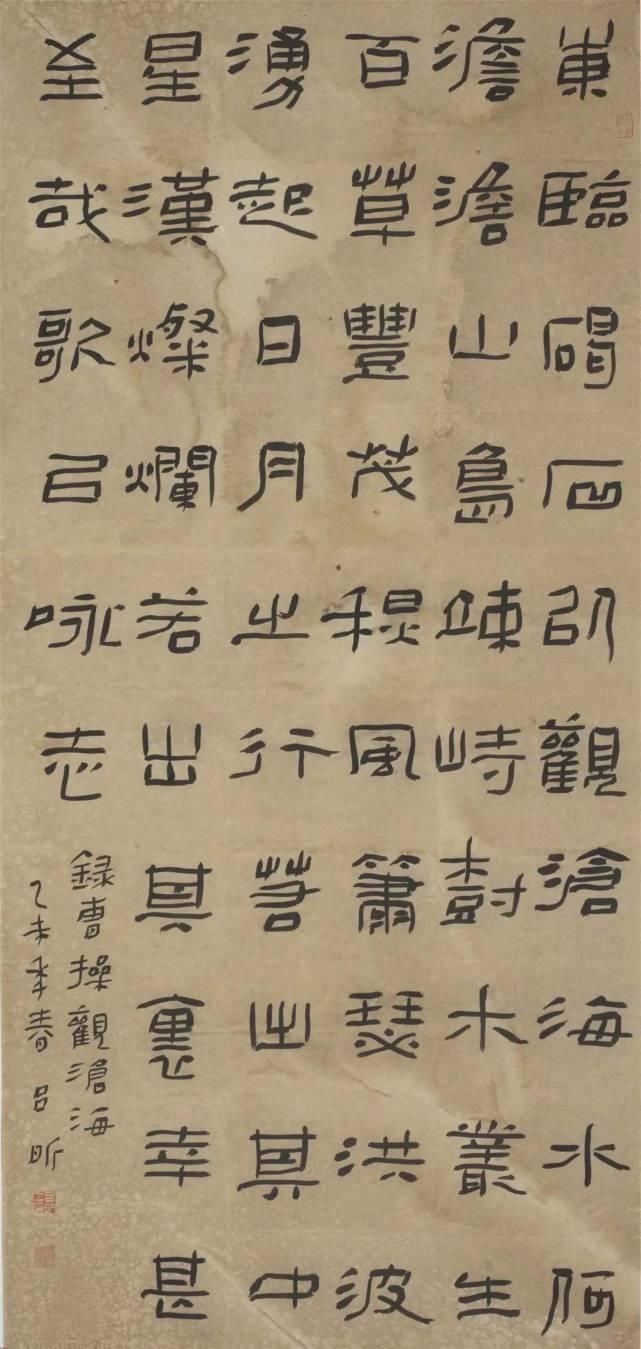 東臨碣石以觀滄海水何
澹澹山島竦峙樹木叢生
百草豐茂秋風簫瑟洪波
湧起日月之行若出其中
星漢燦爛若出其裏幸甚
至哉歌以咏志
録曹操觀滄海
乙未年春 吕昕